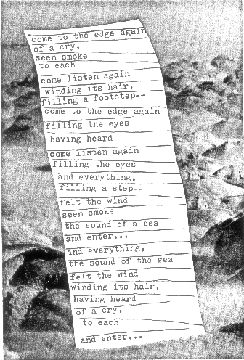 come to the edge again
of a cry,
seen smoke
to each
come listen again
winding its hair,
filling a footstep..
come to the edge again
filling the eyes
having heard
come listen again
filling the eyes
and everything,
filling a step..
felt the wind
seen smoke
the sound of a sea
and enter...
and everything,
the sound of the sea
felt the wind
winding its hair,
having heard
of a cry,
to each
and enter...